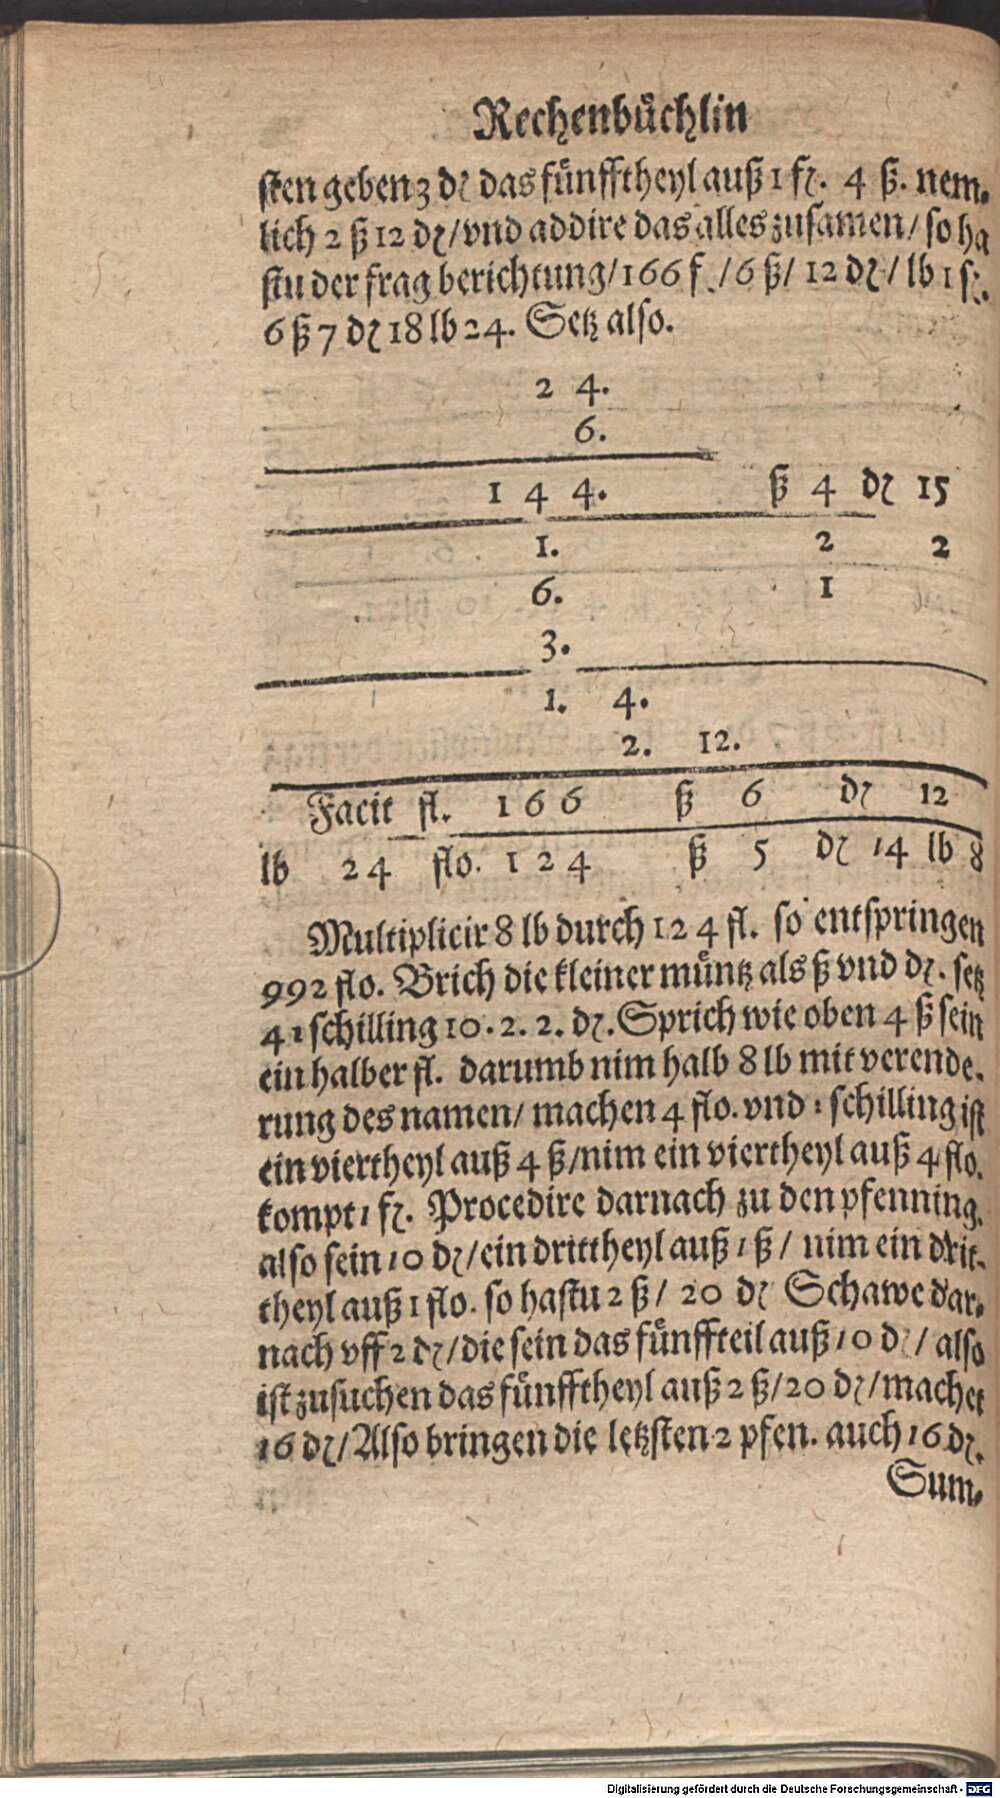 Rechenbuͤchlin
sten geben 3 ₰ das fuͤnfftheyl auß 1 fl. 4 ß. nem⸗
lich 2 ß 12 ₰/ vnd addire das alles zusamen/ so ha
stu der frag berichtung/ 166 f./ 6 ß/ 12 ₰/ lb 1 fl.
6 ß 7 ₰ 18 lb 24. Setz also.
2 4.
6.
1 4 4. ß 4 ₰ 15
1. 2 2
6. 1
3.
1. 4.
2. 12.
Facit fl. 1 6 6 ß 6 ₰ 12
lb 24 flo. 1 2 4 ß 5 ₰ 14 lb 8
Multiplicir 8 lb durch 12 4 fl. so entspringen
992 flo. Brich die kleiner muͤntz als ß vnd ₰. setz
4 1 schilling 10. 2. 2. ₰. Sprich wie oben 4 ß sein
ein halber fl. darumb nim halb 8 lb mit verende⸗
rung des namen/ machen 4 flo. vnd 1 schilling ist
ein viertheyl auß 4 ß/ nim ein viertheyl auß 4 flo.
kompt 1 fl. Procedire darnach zu den pfenning,
also sein 10 ₰/ ein drittheyl auß 1 ß/ nim ein drit⸗
theyl auß 1 flo. so hastu 2 ß/ 20 ₰ Schawe dar⸗
nach vff 2 ₰/ die sein das fuͤnffteil auß 10 ₰/ also
ist zusuchen das fuͤnfftheyl auß 2 ß/ 20 ₰/ machet
16 ₰/ Also bringen die letzsten 2 pfen. auch 16 ₰.
Sum⸗
Digitalisierung gefördert durch die Deutsche Forschungsgemeinschaft - DFG